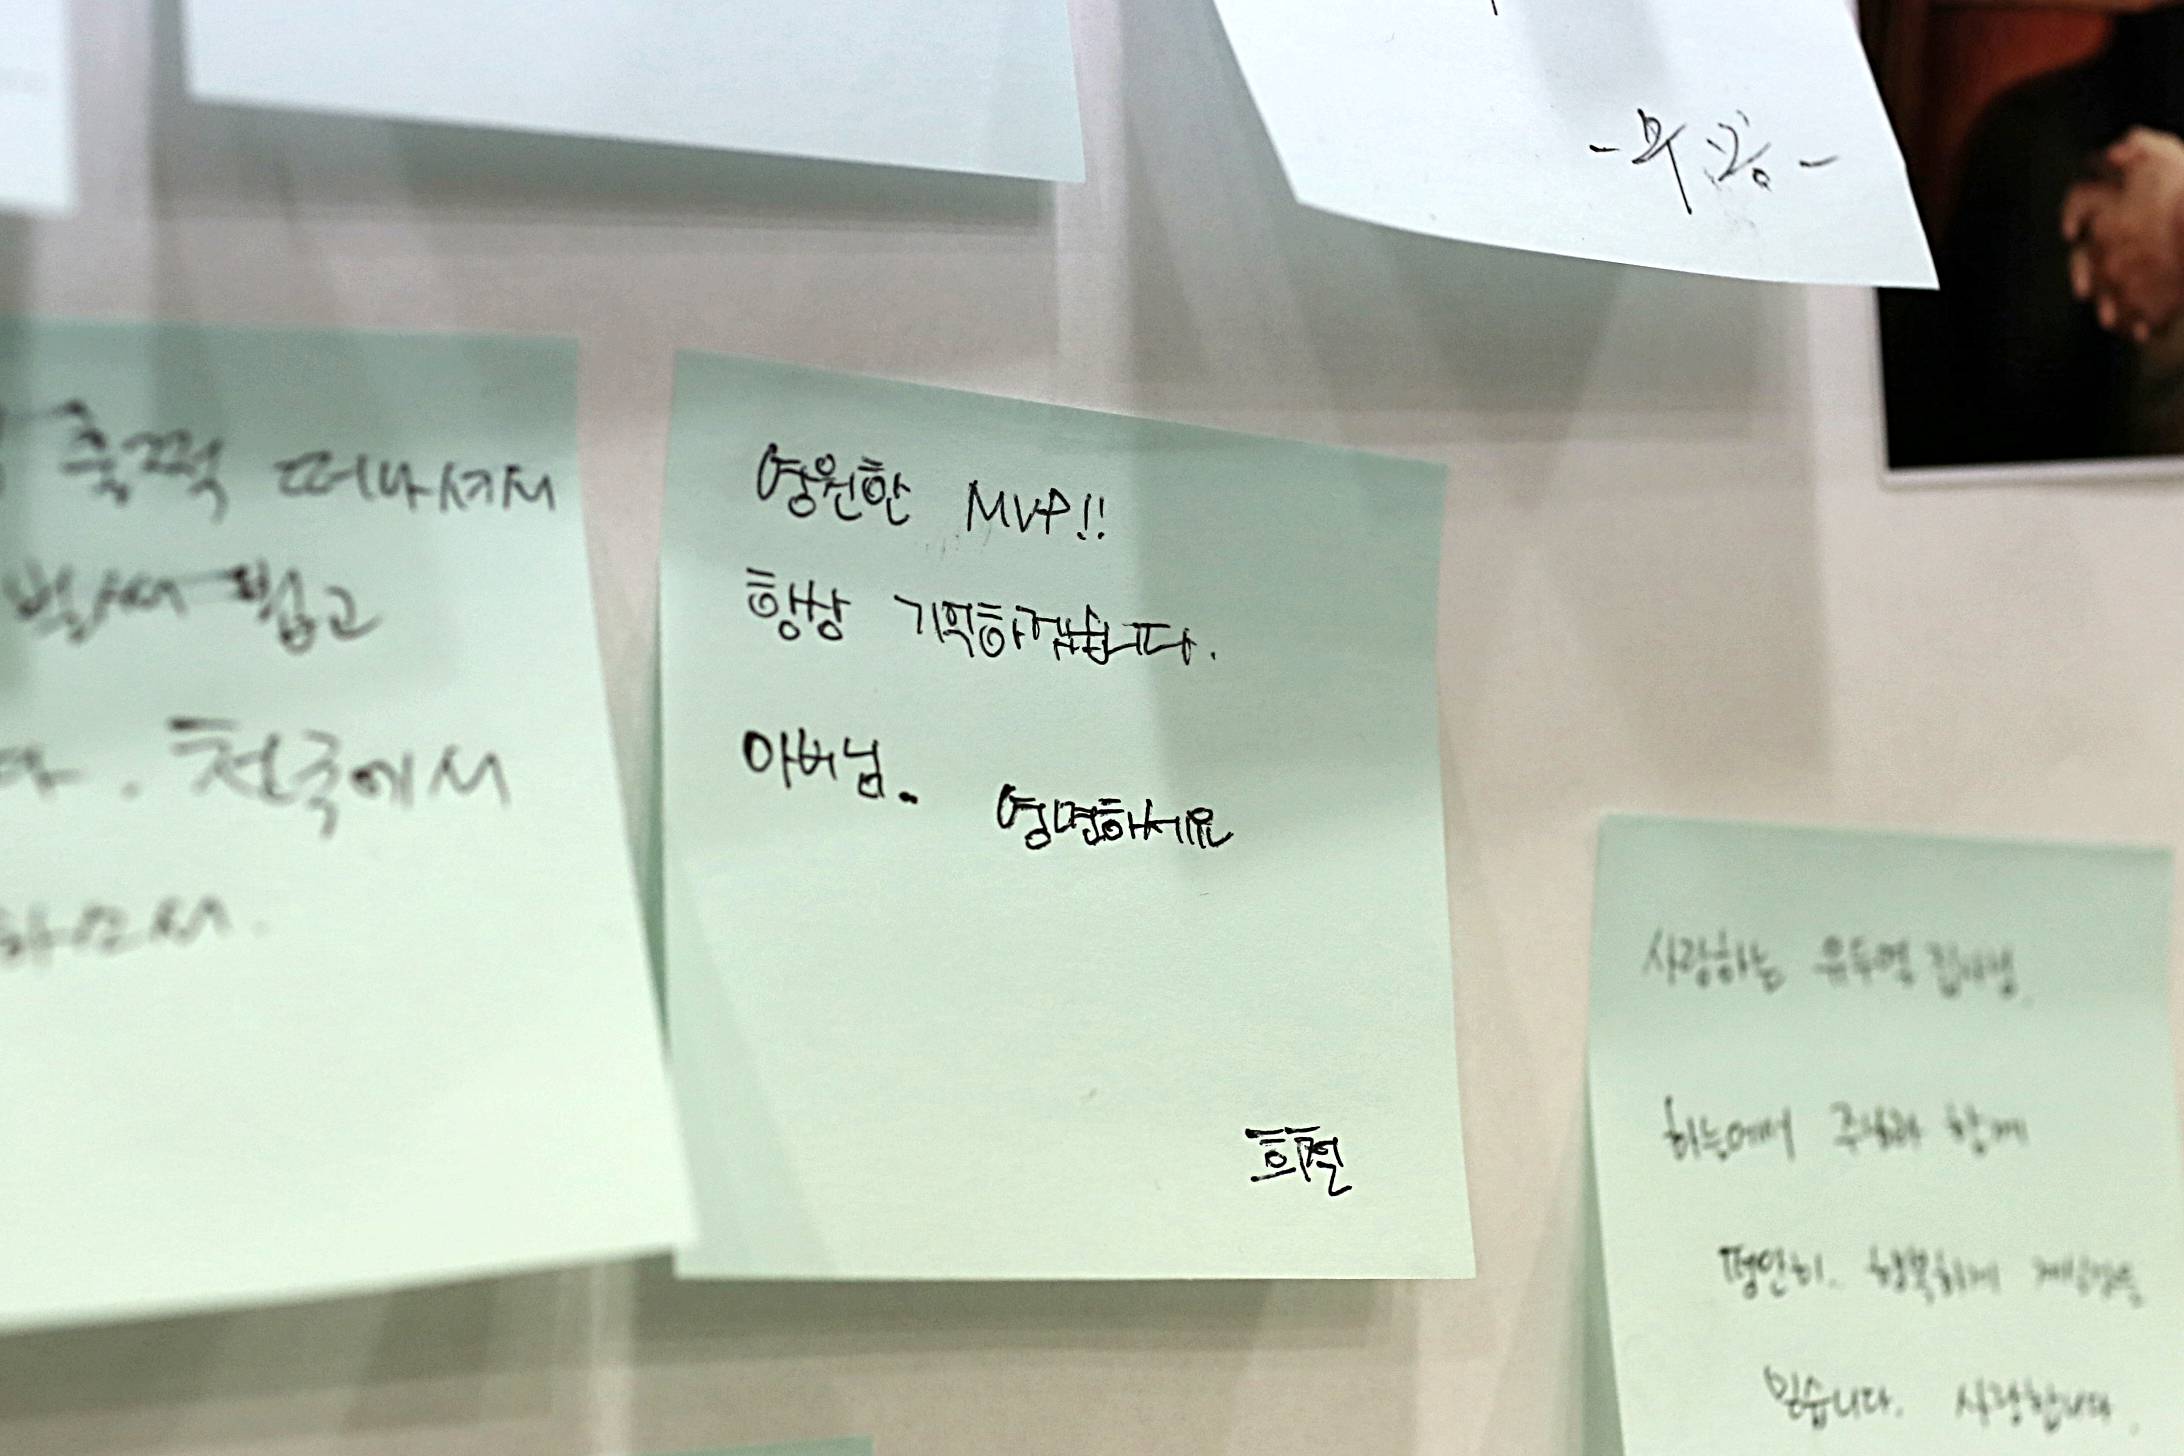 -무공-
훌쩍 떠나셔서
벌써 뵙고
다. 천국에서
하소서.
영원한 MVP!!
항상 기억하겠습니다.
아버님.
영면하세요
희철
사랑하는 유두영 집사님.
하늘에서 주님과 함께
평안히. 행복하게
믿습니다. 사랑합니다.